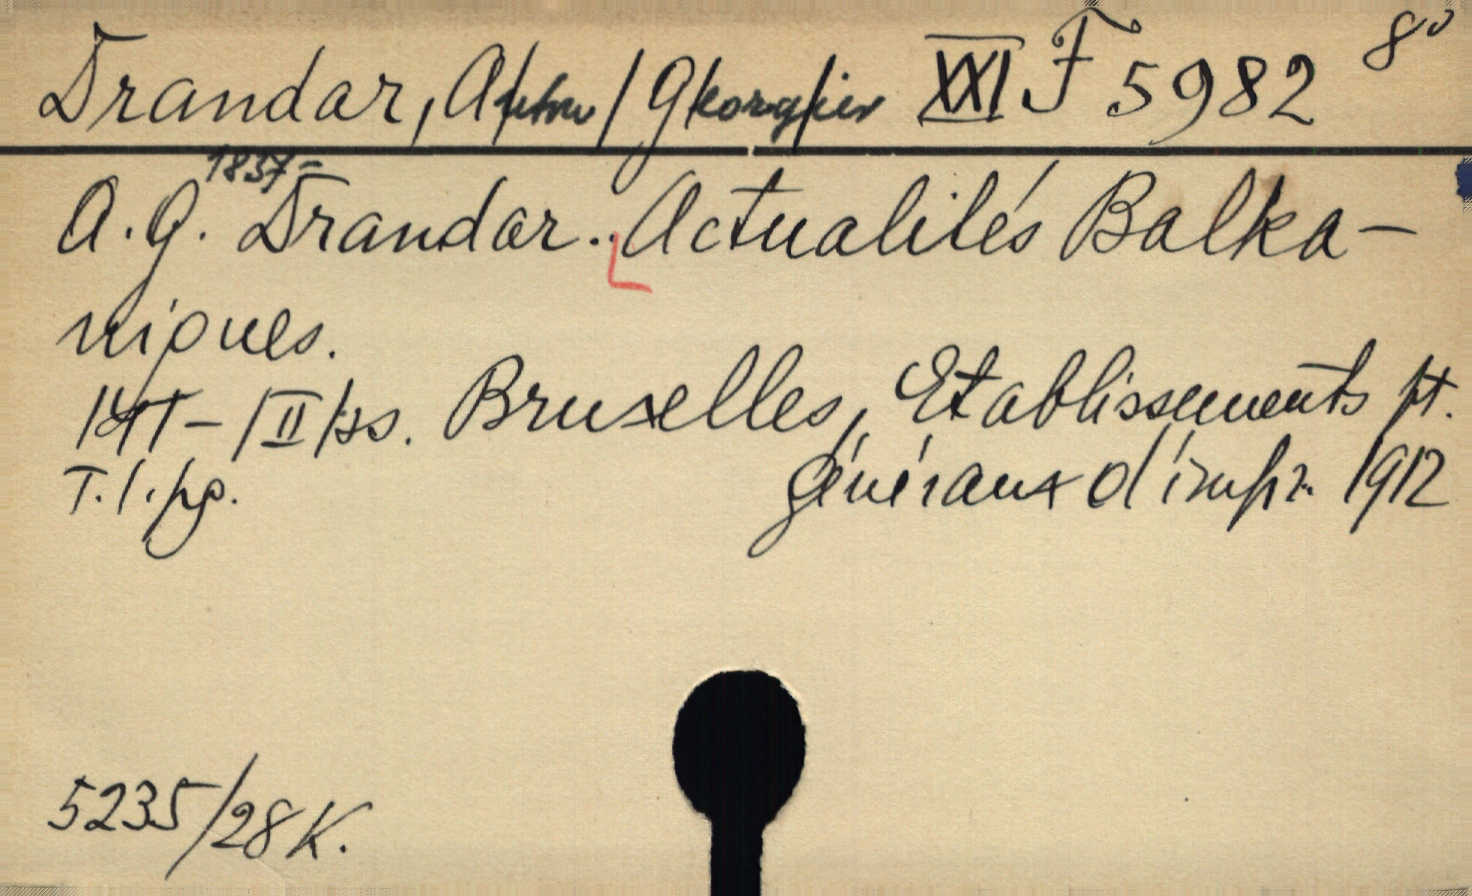 Drandar, A/nton/ G/eorg/iev XXI F 5982 8°
1857-
A. G. Drandar. Actualités Balka-
niques.
141 - /II/ ss. Bruxelles, Etablissements pt.
T. 1. pp. généraux d'impr. 1912
5235/28 K.